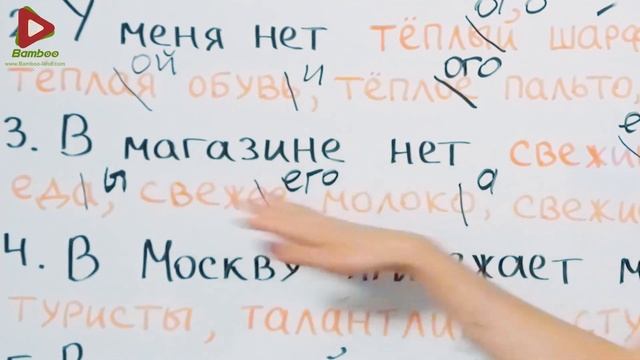 Bamboo
2. У меня нет тёплый шарф
ого
ой и ого
тёплая обувь, тёплое пальто,
3. В магазине нет свежи
ы его а
еда, свежее молоко, свежи
4. В Москву приезжает м
туристы, талантли ст